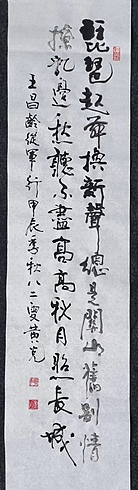 琵琶起舞換新聲總是關山舊別情
撩乱邊愁聽不盡高高秋月照長城
王昌齡從軍行甲辰季秋八二叟黃克